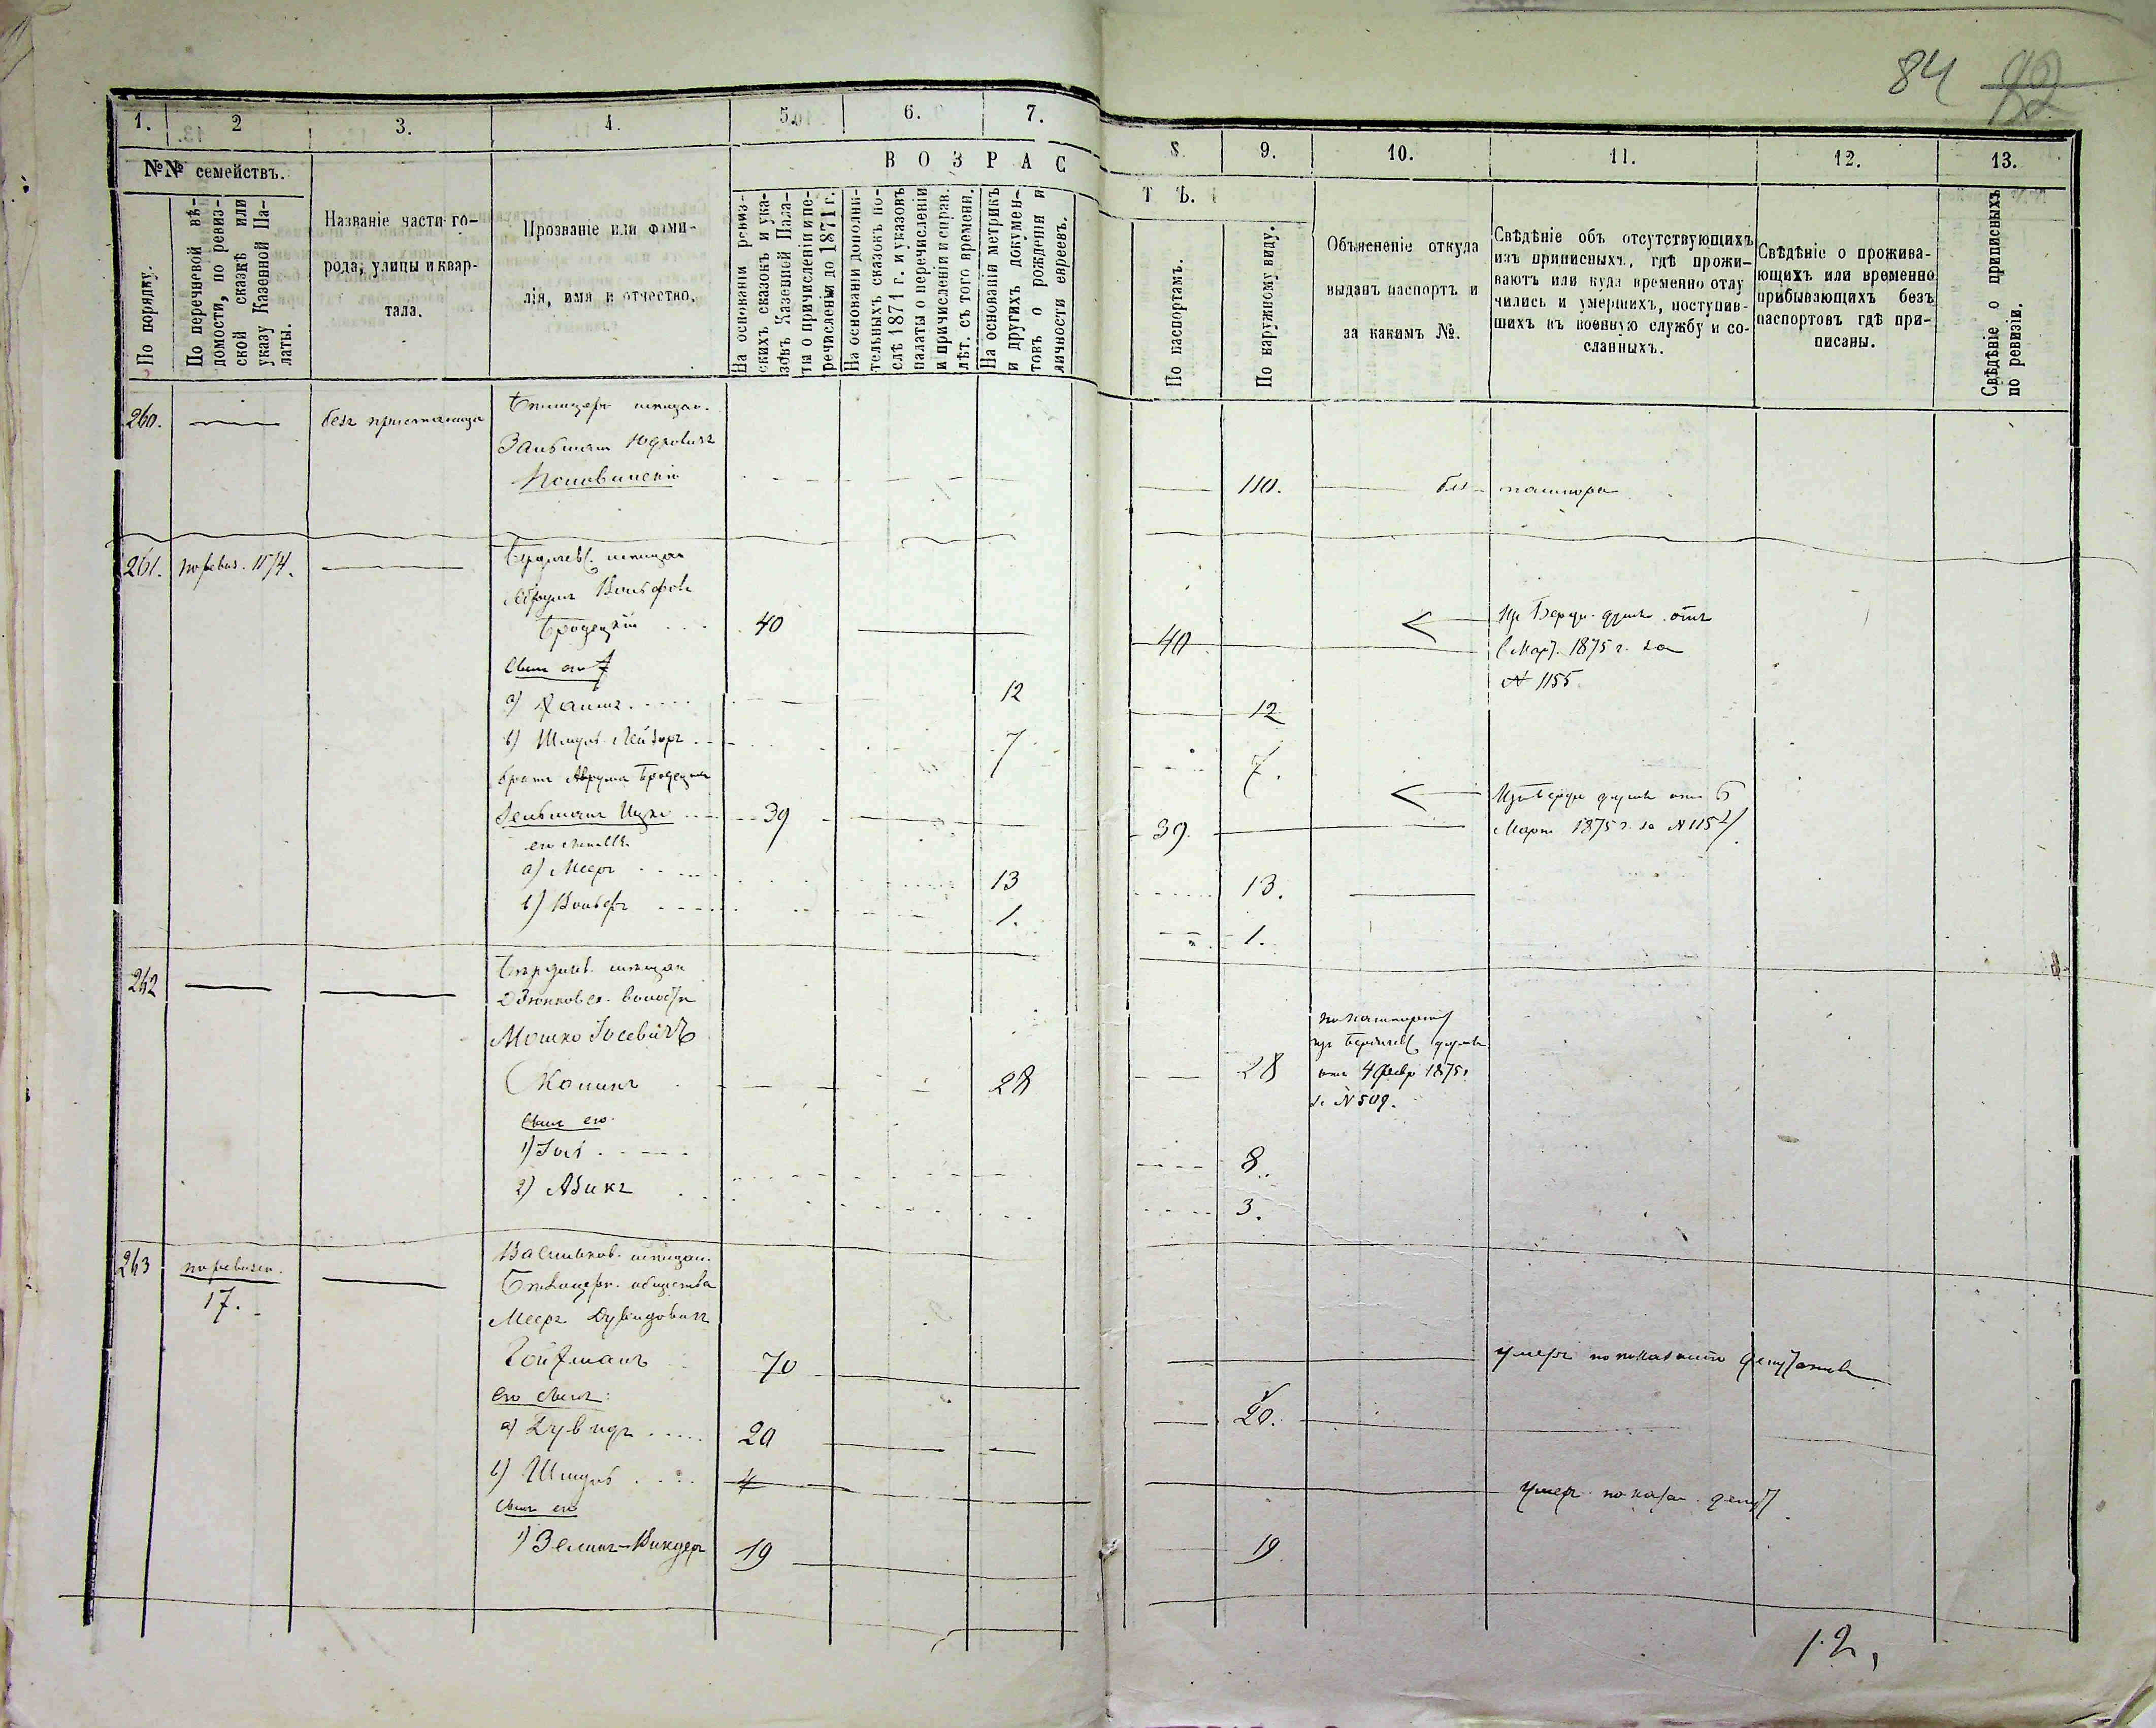 84 82
1. 2 3. 4. 5. 6. 7. 8. 9. 10. 11. 12. 13.
№№ семействъ.
По порядку.
По перечневой вѣ-
домости, по ревиз-
ской сказкѣ или
указу Казенной Па-
латы.
Названіе части го-
рода, улицы и квар-
тала.
Прозваніе или фами-
лія, имя и отчество.
ВОЗРАСТЪ.
На основаніи ревиз-
скихъ сказокъ и ука-
зовъ Казенной Пала-
ты о причисленіи и пе-
речисленіи до 1871 г.
На основаніи дополни-
тельныхъ сказокъ по-
слѣ 1871 г. и указовъ
палаты о перечисленіи
и причисленіи и справ.
лѣт. съ того времени.
На основаніи метрикъ
и другихъ докумен-
товъ о рожденіи и
личности евреевъ.
По паспортамъ.
По наружному виду.
Объясненіе откуда
выданъ паспортъ и
за какимъ №.
Свѣдѣніе объ отсутствующихъ
изъ приписныхъ, гдѣ прожи-
ваютъ или куда временно отлу
чились и умершихъ, поступив-
шихъ въ военную службу и со-
сланныхъ.
Свѣдѣніе о прожива-
ющихъ или временно
прибывающихъ безъ
паспортовъ гдѣ при-
писаны.
Свѣдѣніе о приписныхъ
по ревизіи.
260. без пристанища
мещан.
Зальман Юдкович
110. без
261. по ревиз. 1174.
Бердичев. мещан
Аврум Вольфов
Бродецкій 40 40
Из Берди. думы отъ
Март. 1875 г. за
№ 1155
Сын его
а) Хаим 12 12
b) Шмуль Лейзор 7 7.
брат Аврума Бродецкаго
Зельман Ицко 39 39.
Из Берди думы от 6
Март 1875 г. за № 1154
его сыновья
а) Меер 13 13.
b) Вольф 1. 1.
262
Бердичев. мещан
волости
Мошко Іосевичъ
28 28
по паспорту
из Бердичев думы
от 4 Февр 1875
за № 509.
Сын его
1) Іось 8.
2) Айзик 3.
263 по ревизск.
17.
Васильков. мещан.
общества
Меер Дувидович
Гойхманъ 70
умеръ по показанію депутатов
его сын:
а) Дувид 20 20.
b) Шмуль 4
умер показ. депут
Сын его
1) Зелик-Виндер 19 19
12,